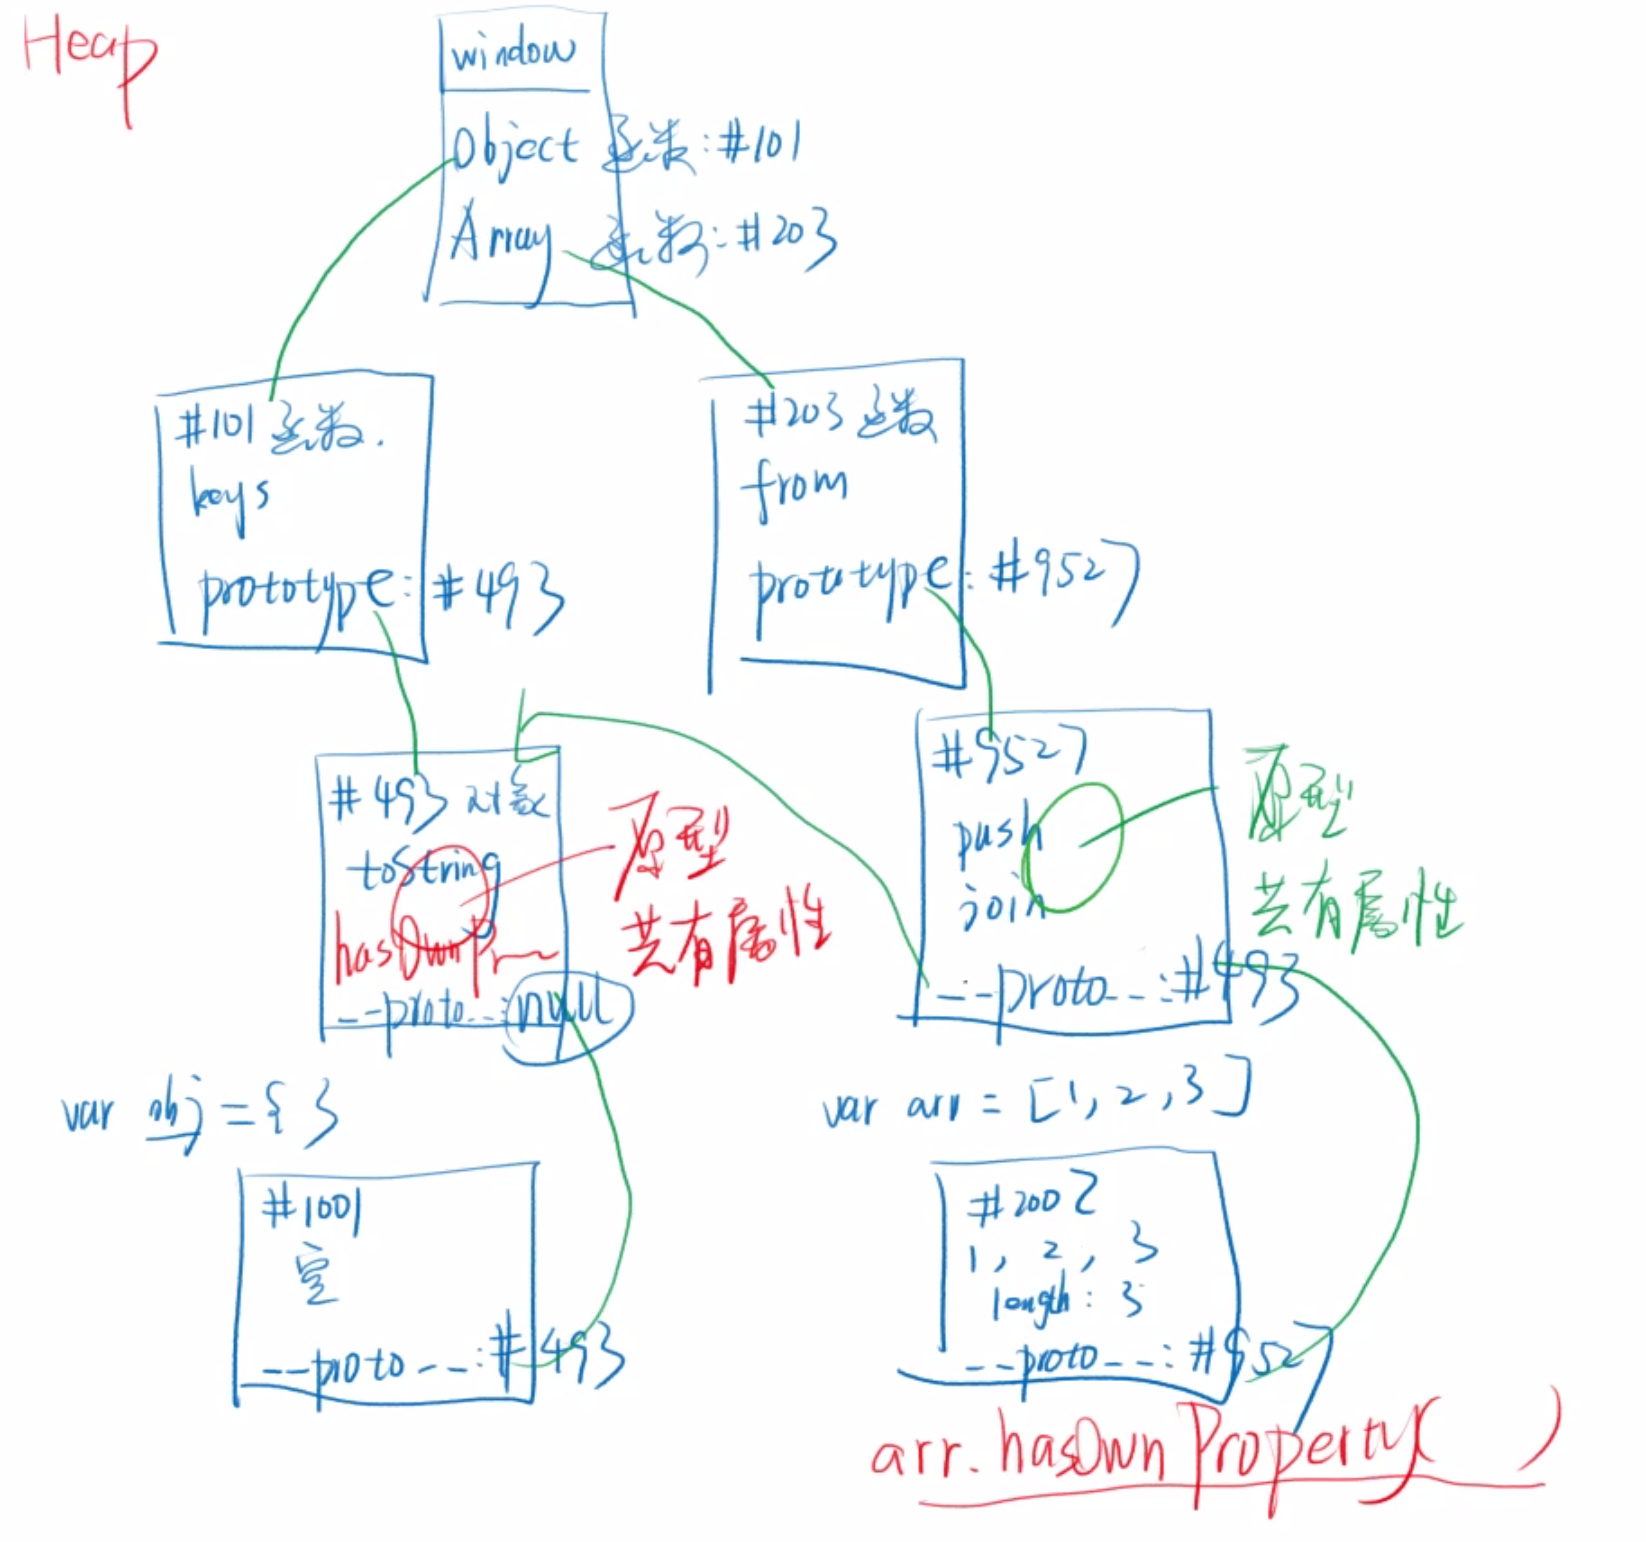 Heap
window
Object 函数:#101
Array 函数:#203
#101 函数.
keys
prototype: #493
#203 函数
from
prototype: #9527
#493 对象
toString
hasOwnPr
__proto__:null
原型
共有属性
#9527
push
join
__proto__:#493
原型
共有属性
var obj = { }
#1001
空
__proto__:#493
var arr = [1, 2, 3]
#2002
1, 2, 3
length: 3
__proto__: #9527
arr.hasOwnProperty( )